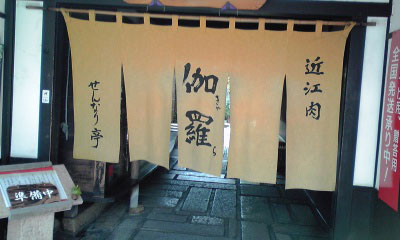 近江肉
伽羅
きゃ
ら
せんなり亭
準備中
全国発送承り中!
贈答用